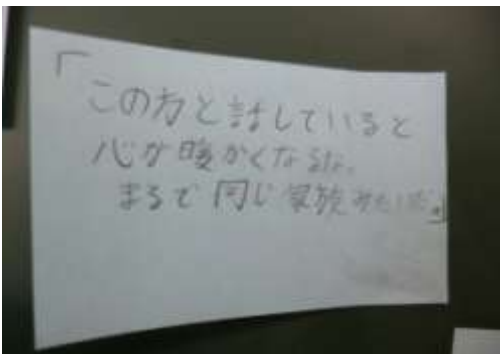 「
この方と話していると
心が暖かくなるね。
まるで同じ家族みたいだ。」